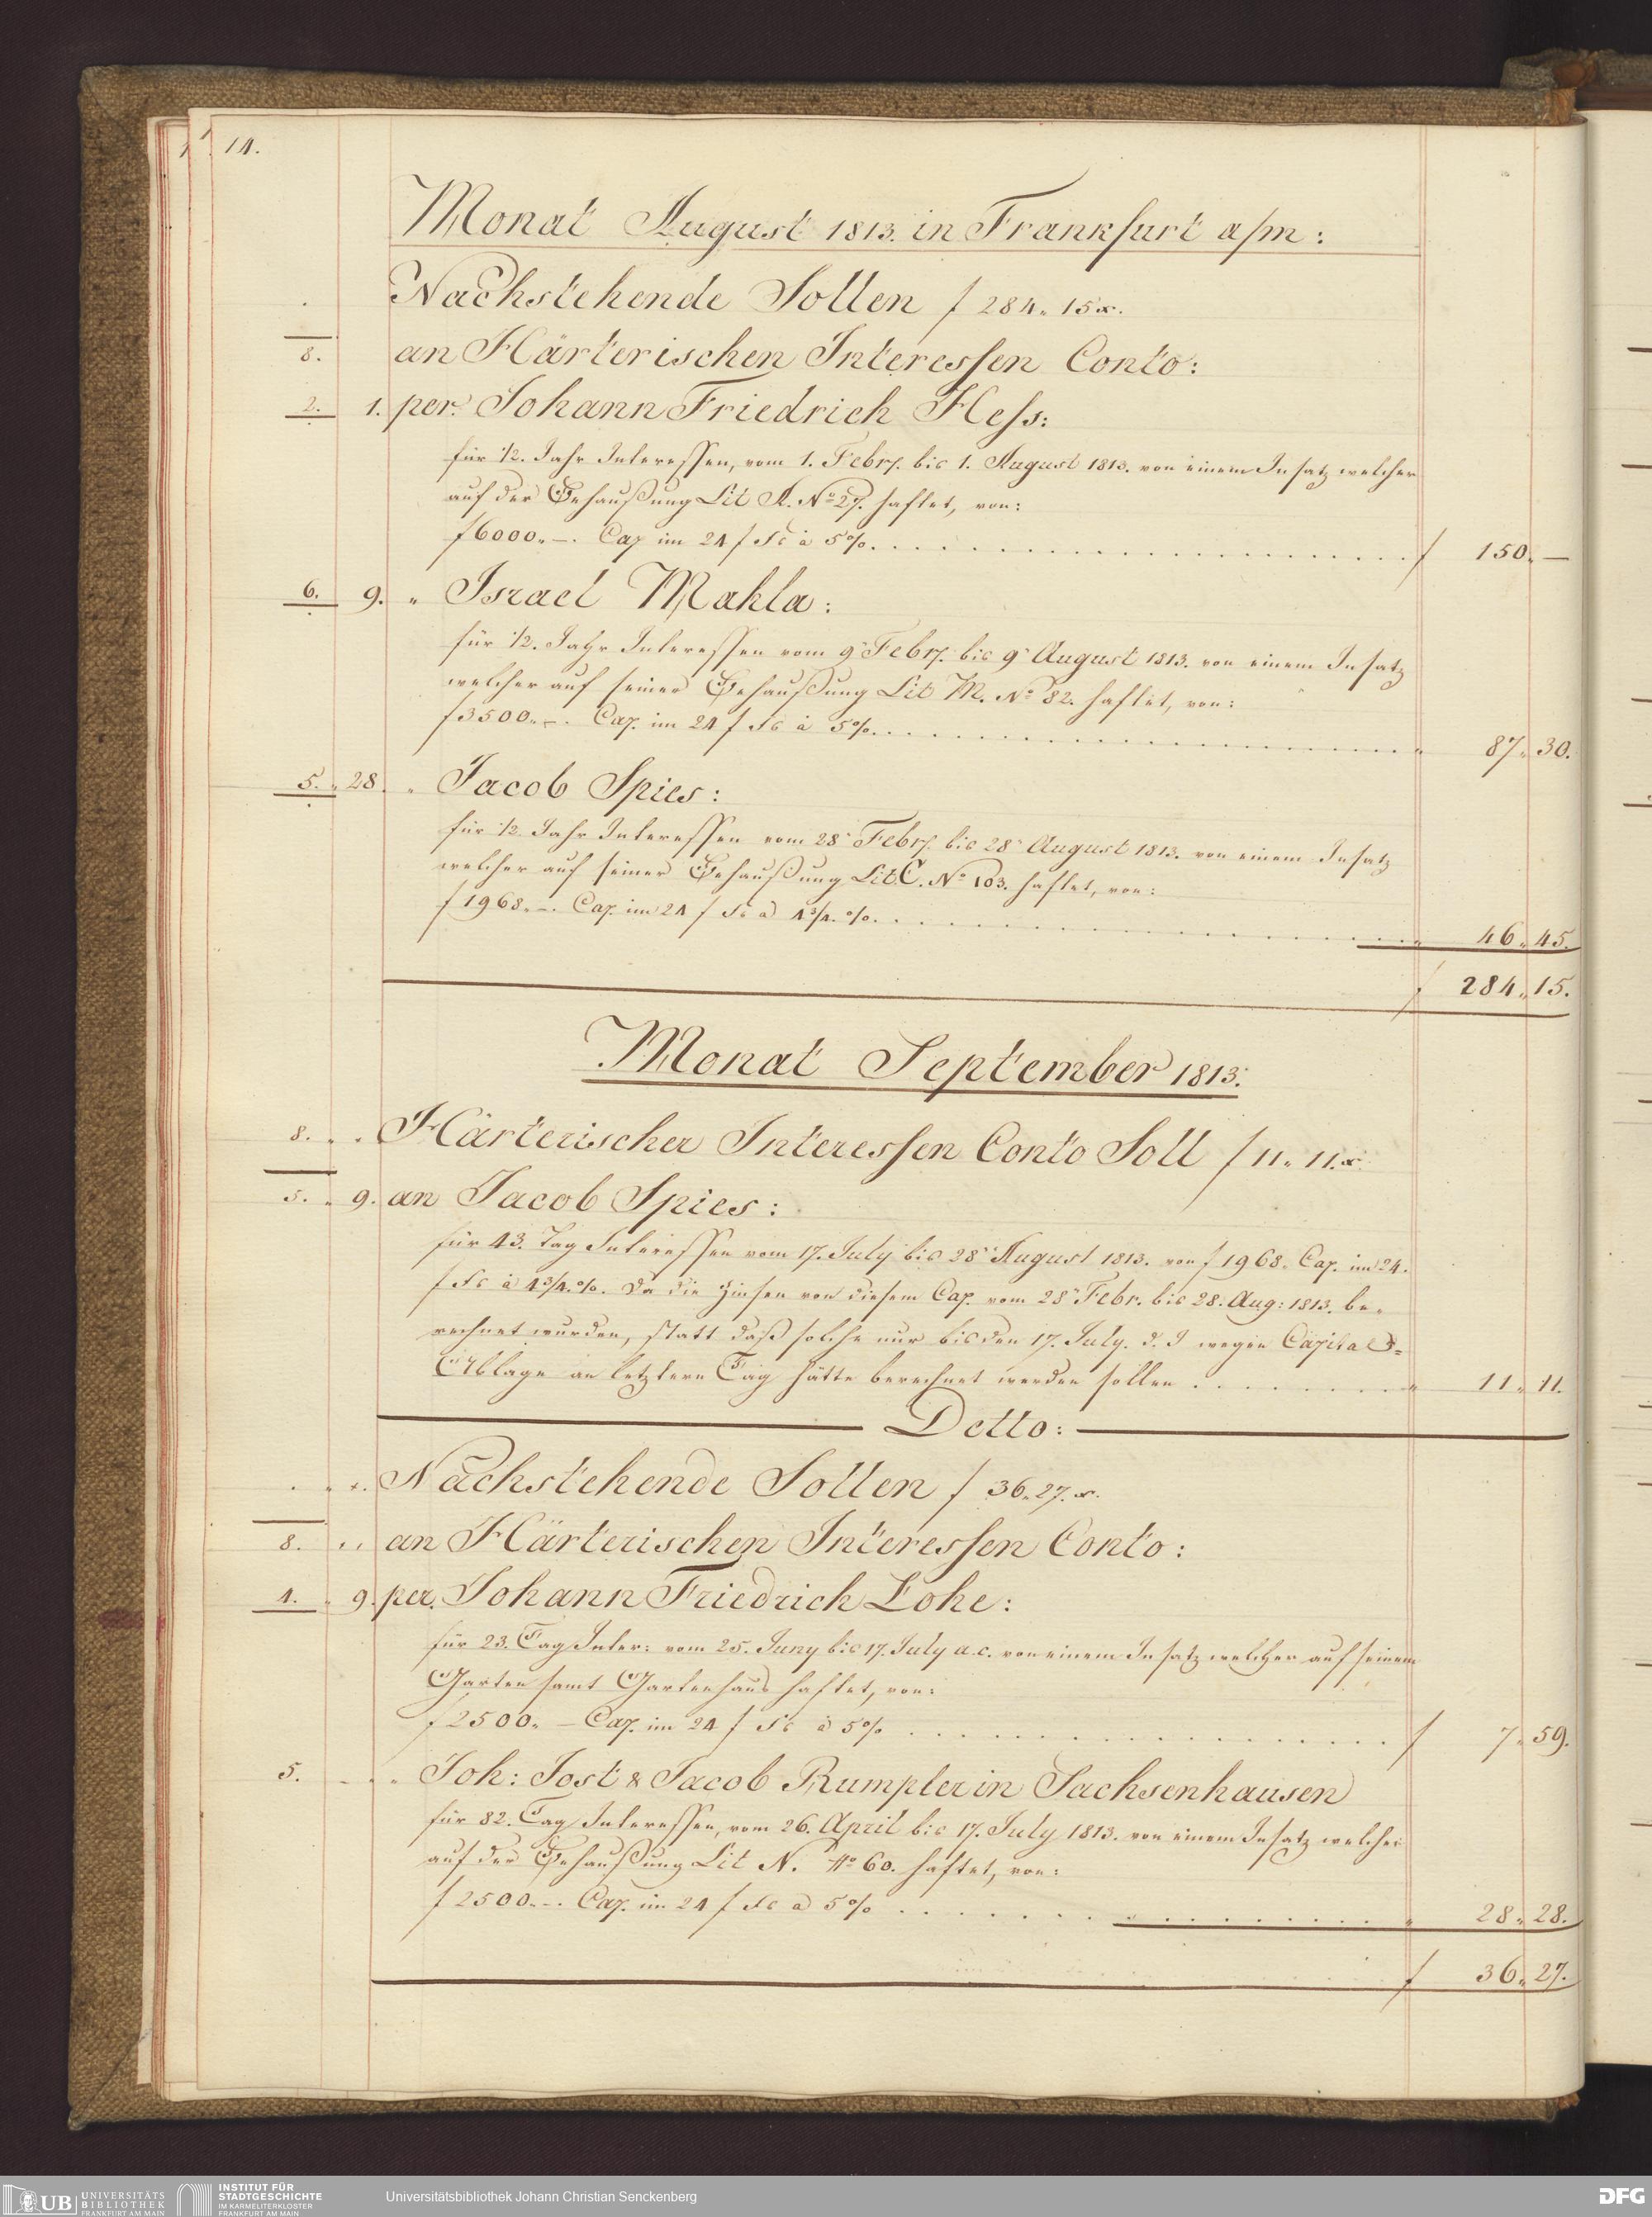 14.
Monat August 1813. in Frankfurt a/m:
Nachstehende Sollen f 284„ 15 x.
8. an Härterischen Interessen Conto:
2. 1. per. Johann Friedrich Hess:
für 1/2. Jahr Interessen, vom 1. Febry. bis 1. August 1813. von einem Insatz welcher
auf der Behaußung Lit A. No 27. haftet, von:
f 6000„ —. Cap im 24 f Fs à 5%. f 150„ —
6. 9. „ Israel Mahla:
für 1/2. Jahr Interessen vom 9n Febry. bis 9n August 1813. von einem Insatz
welcher auf seiner Behaußung Lit M. No 82. haftet, von:
f 3500„ —. Cap. im 24 f Fs à 5%. „ 87„ 30.
5. „ 28. „ Jacob Spies:
für 1/2 Jahr Interessen vom 28n Febry. bis 28n August 1813. von einem Insatz
welcher auf seiner Behaußung Lit C. No 103. haftet, von:
f 1968„ —. Cap. im 24 f Fs à 4 3/4. %. „ 46„ 45.
f 284„ 15.
Monat September 1813.
8. „ „ Härterischer Interessen Conto Soll f 11„ 11. x
5. „ 9. an Jacob Spies:
für 43. Tag Interessen vom 17. July bis 28n August 1813. von f 1968. Cap. im 24.
f Fs à 4 3/4. %. Da die Zinsen von diesem Cap. vom 28n Febr. bis 28. Aug: 1813. be-
rechnet wurden, statt daß solche nur bis den 17. July. d. J wegen Capital-
Ablage an letztern Tag hätte berechnet werden sollen . „ 11„ 11.
Detto:
Nachstehende Sollen f 36„ 27. x.
8. „ an Härterischen Interessen Conto:
4. „ 9. per. Johann Friedrich Lohe:
für 23. Tag Inter: vom 25. Juny bis 17. July a. c. von einem Insatz welcher auf seinem
Garten samt Gartenhaus haftet, von:
f 2500„ — Cap. im 24 f Fs à 5% f 7„ 59.
5. „ Joh: Jost & Jacob Rumpler in Sachsenhausen
für 82. Tag Interessen, vom 26. April bis 17. July 1813. von einem Insatz welcher
auf der Behaußung Lit N. No 60. haftet, von:
f 2500„ —. Cap. im 24 f Fs à 5% „ 28„ 28.
f 36„ 27.
UB UNIVERSITÄTS
BIBLIOTHEK
FRANKFURT AM MAIN
INSTITUT FÜR
STADTGESCHICHTE
IM KARMELITERKLOSTER
FRANKFURT AM MAIN
Universitätsbibliothek Johann Christian Senckenberg
DFG